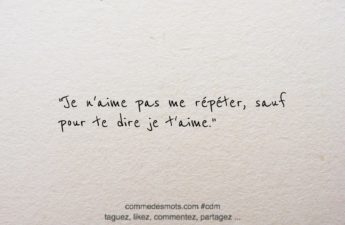 "Je n'aime pas me répéter, sauf
pour te dire je t'aime."
commedesmots.com #cdm
taguez, likez, commentez, partagez ...